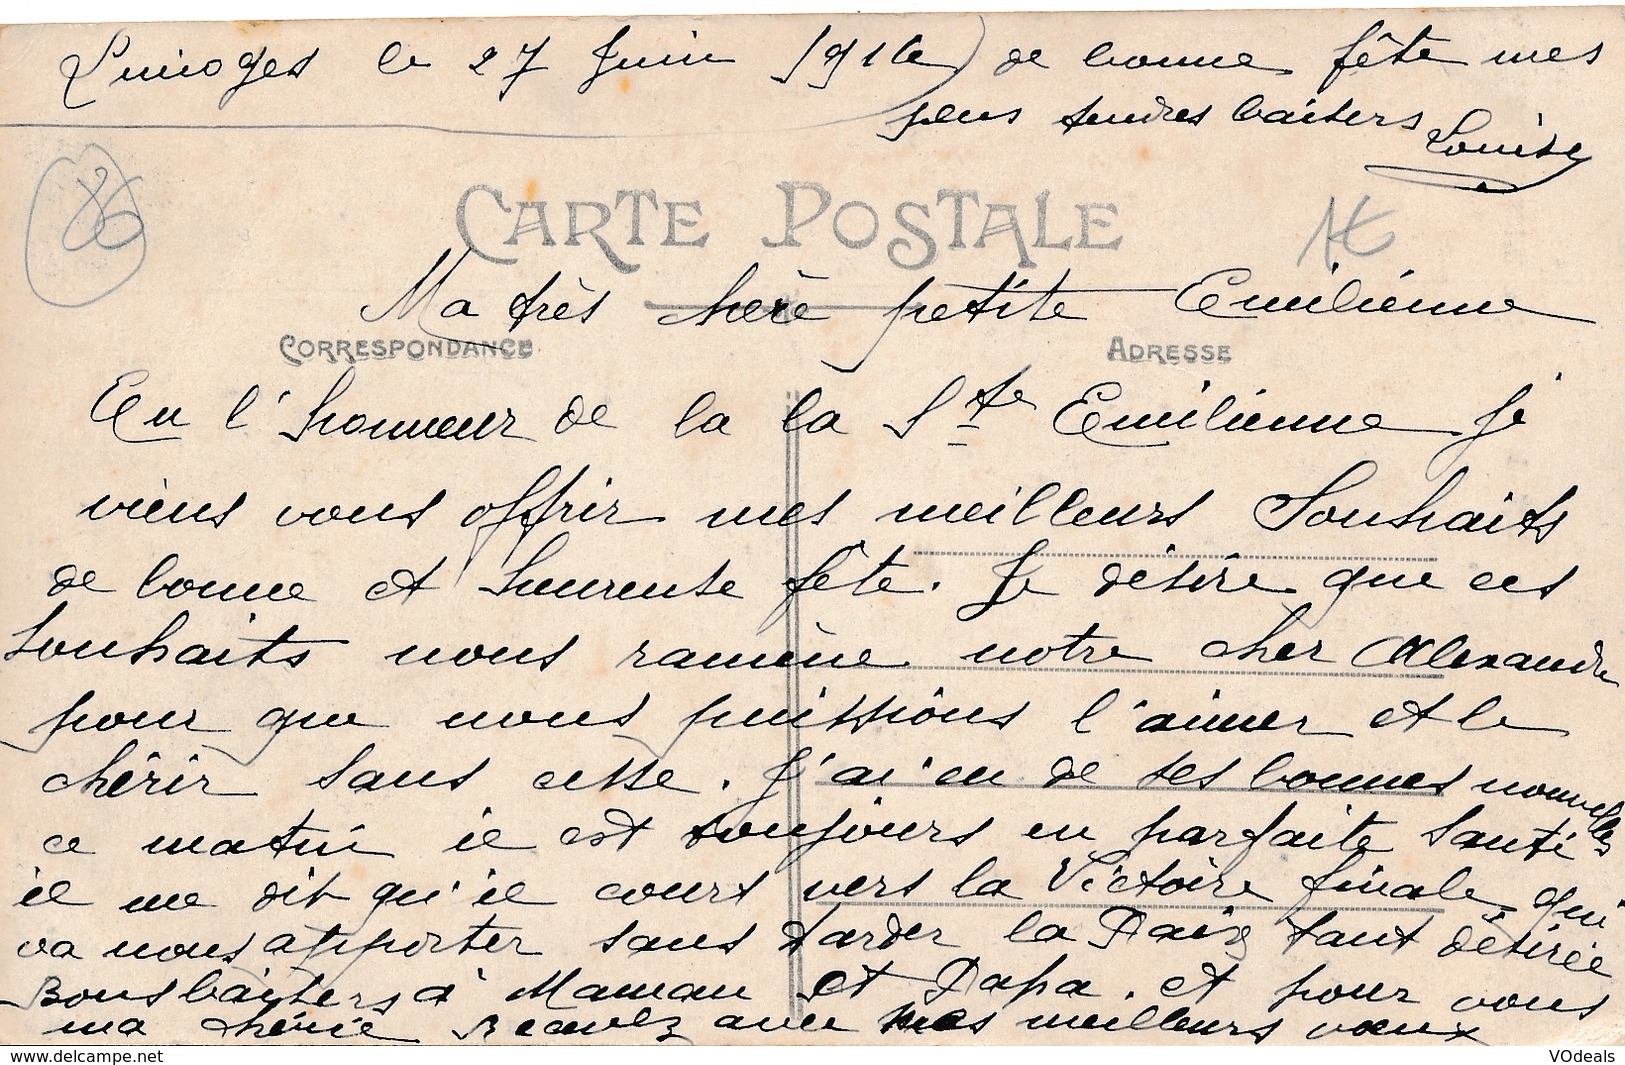 Limoges le 27 Juin 1916) de bonne fête mes
plus tendres baisers Louise
86
CARTE POSTALE
Ma très chère petite Emilienne
CORRESPONDANCE ADRESSE
En l'honneur de la la Ste Emilienne je
viens vous offrir mes meilleurs Souhaits
de bonne et heureuse fête. Je désire que ces
souhaits nous ramène notre cher Alexandre
pour que nous puissions l'aimer et le
chérir sans cesse. J'ai eu de ses bonnes nouvelles
ce matin il est toujours en parfaite santé
il me dit qu'il cours vers la Victoire finale qui
va nous apporter sans tarder la Paix tant désirée
Bons baisers à Maman et Papa. et pour vous
ma chérie Recevez avec mes meilleurs vœux
VOdeals
www.delcampe.net